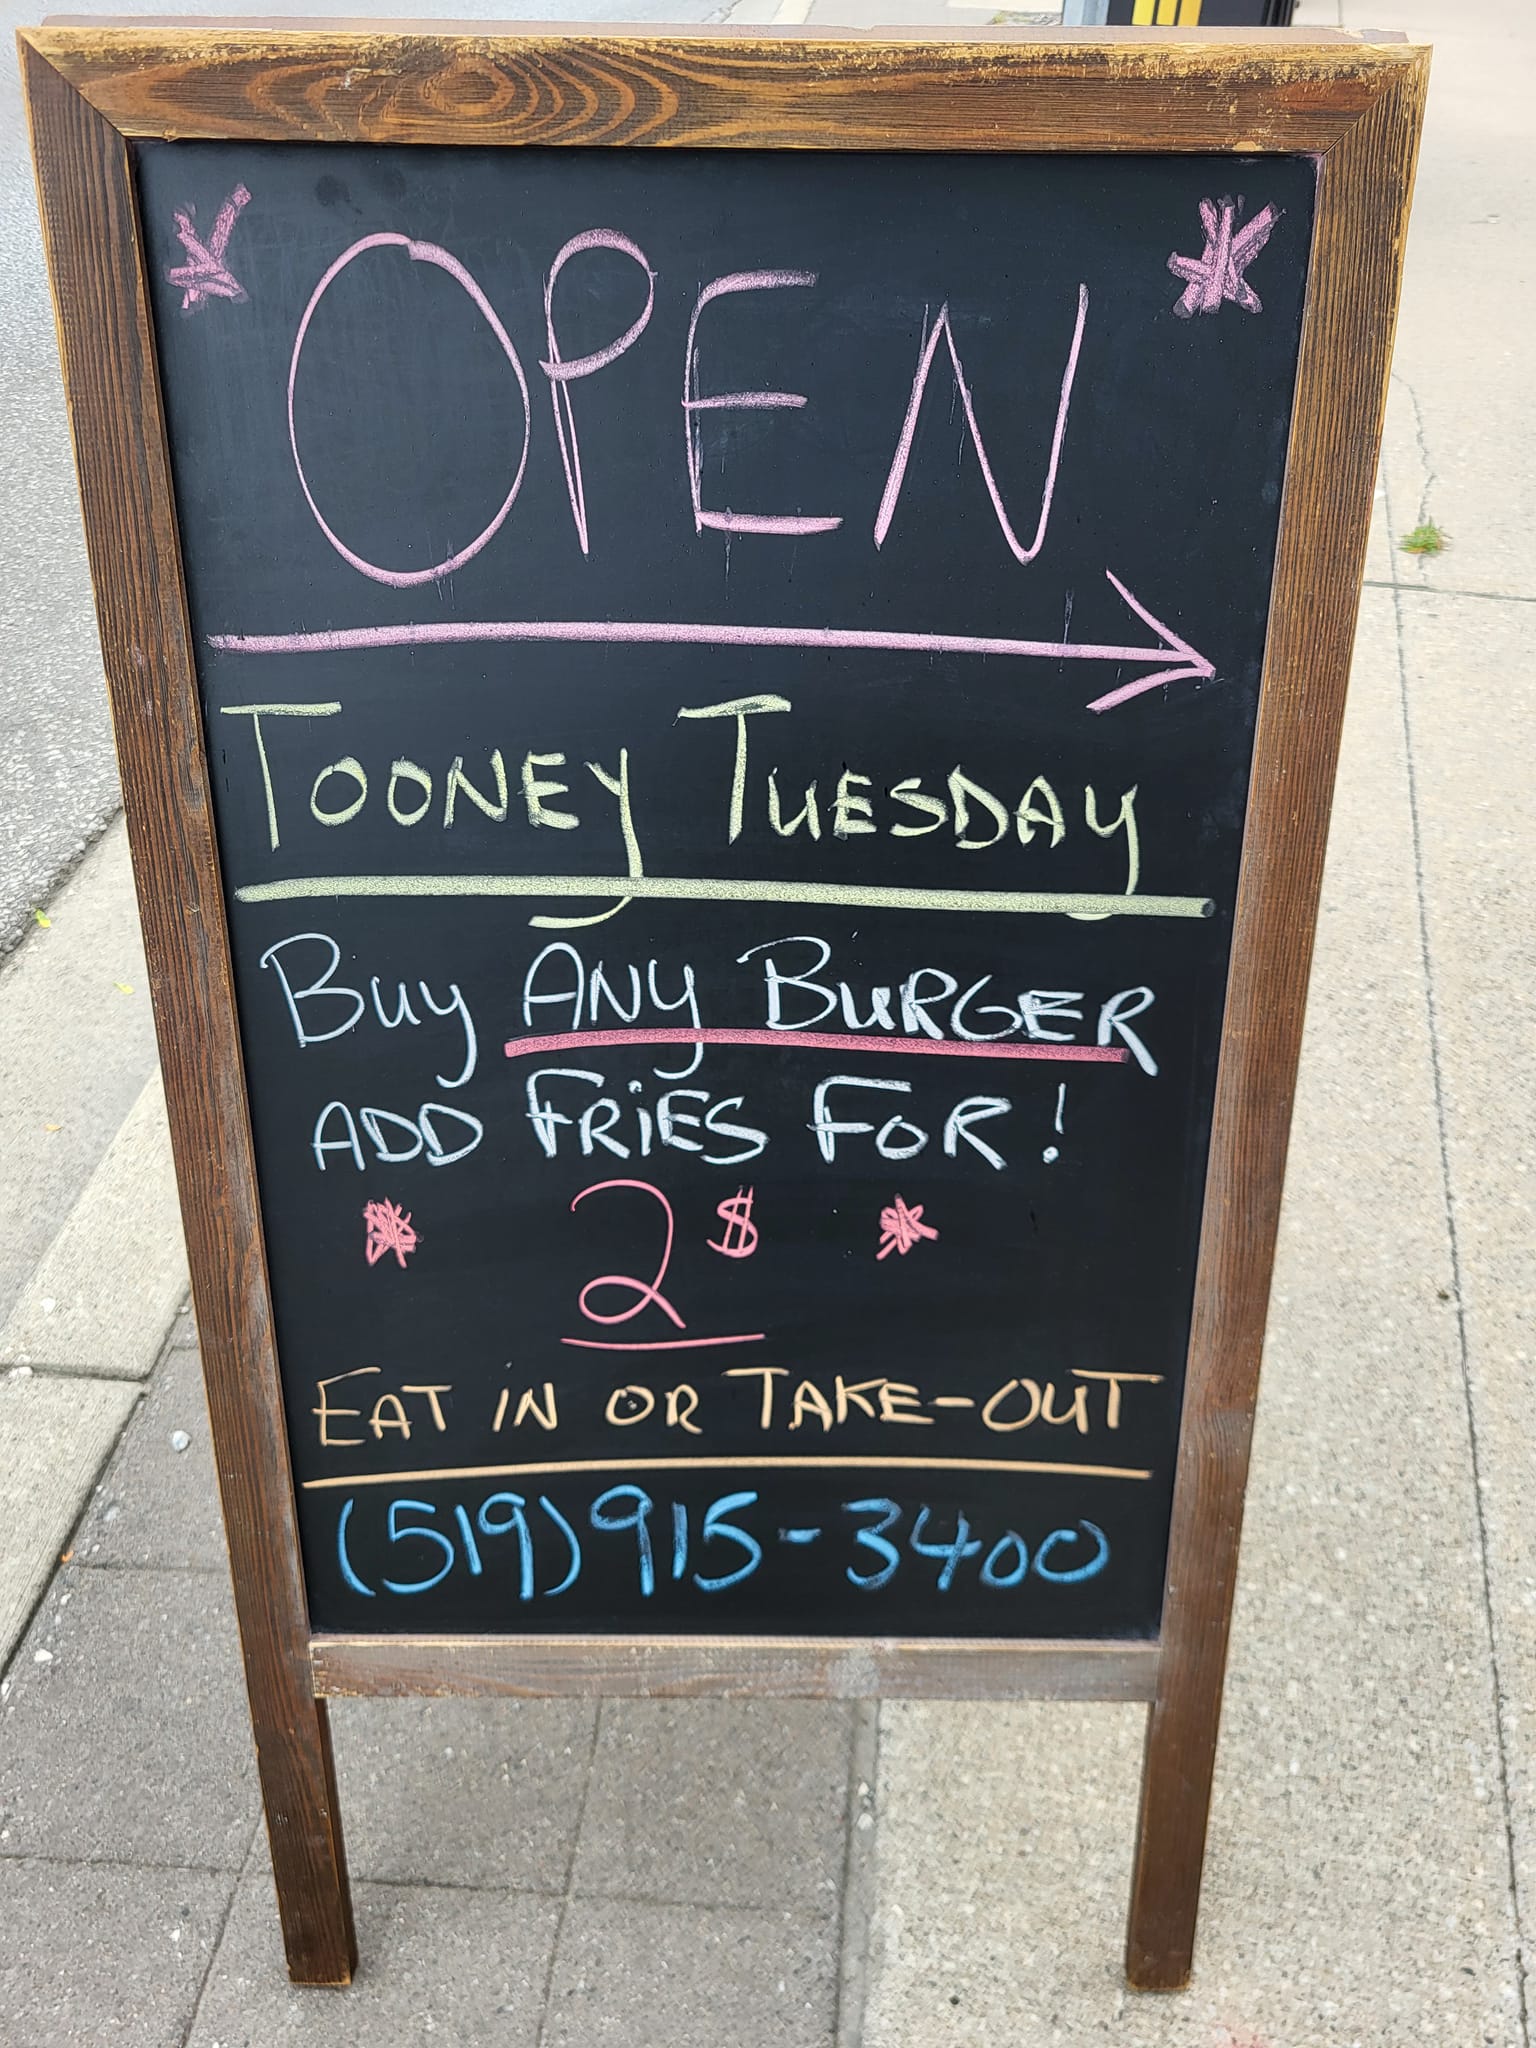 * OPEN *
TOONEY TUESDAY
BUY ANY BURGER
ADD FRiES FOR!
* 2$ *
EAT IN OR TAKE-OUT
(519)915-3400